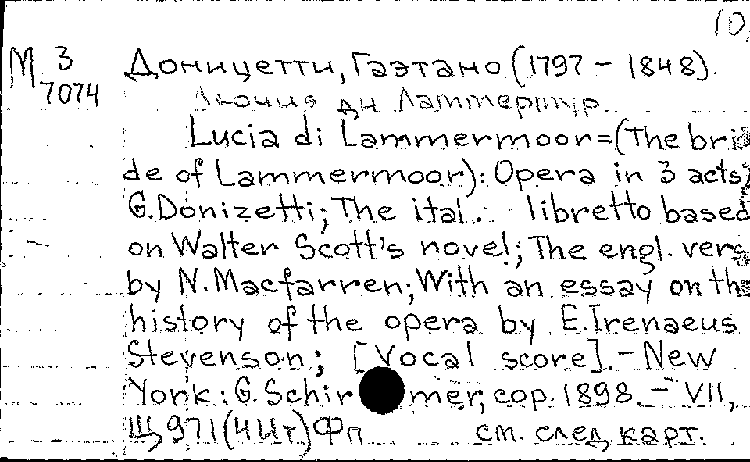 10
М 3 Доницетти, Гаэтано (1797 – 1848).
7074
Лючия ди Ламмермур.
Lucia di Lammermoor=(The bri
de of Lammermoor): Opera in 3 acts/
G.Donizetti; The ital. libretto based
on Walter Scott's novel; The engl. vers
by N. Macfarren; With an essay on the
history of the opera by E. Irenaeus
Stevenson; [Vocal score]. – New
York: G. Schirmer, cop. 1898. – VII,
Щ971(4Ит)Фп см. след. карт.